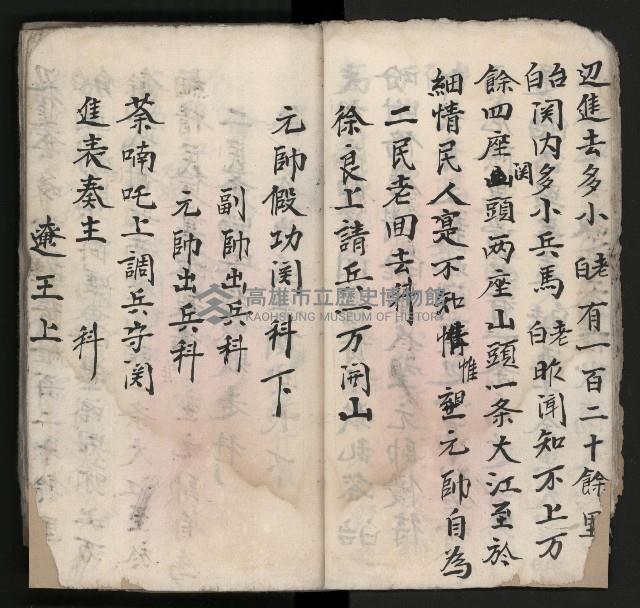 辺進去多小老白有一百二十餘里
台白関内多小兵馬老白昨聞知不上万
餘四座関頭两座山頭一条大江至於
細情民人寔不知情惟望元帥自為
二民老回去科
徐良上請兵二万開山
元帥假功関科下
副帥出兵科
元帥出兵科
荼喃吒上調兵守関
進表奏主 科
遼王上
高雄市立歷史博物館
KAOHSIUNG MUSEUM OF HISTORY